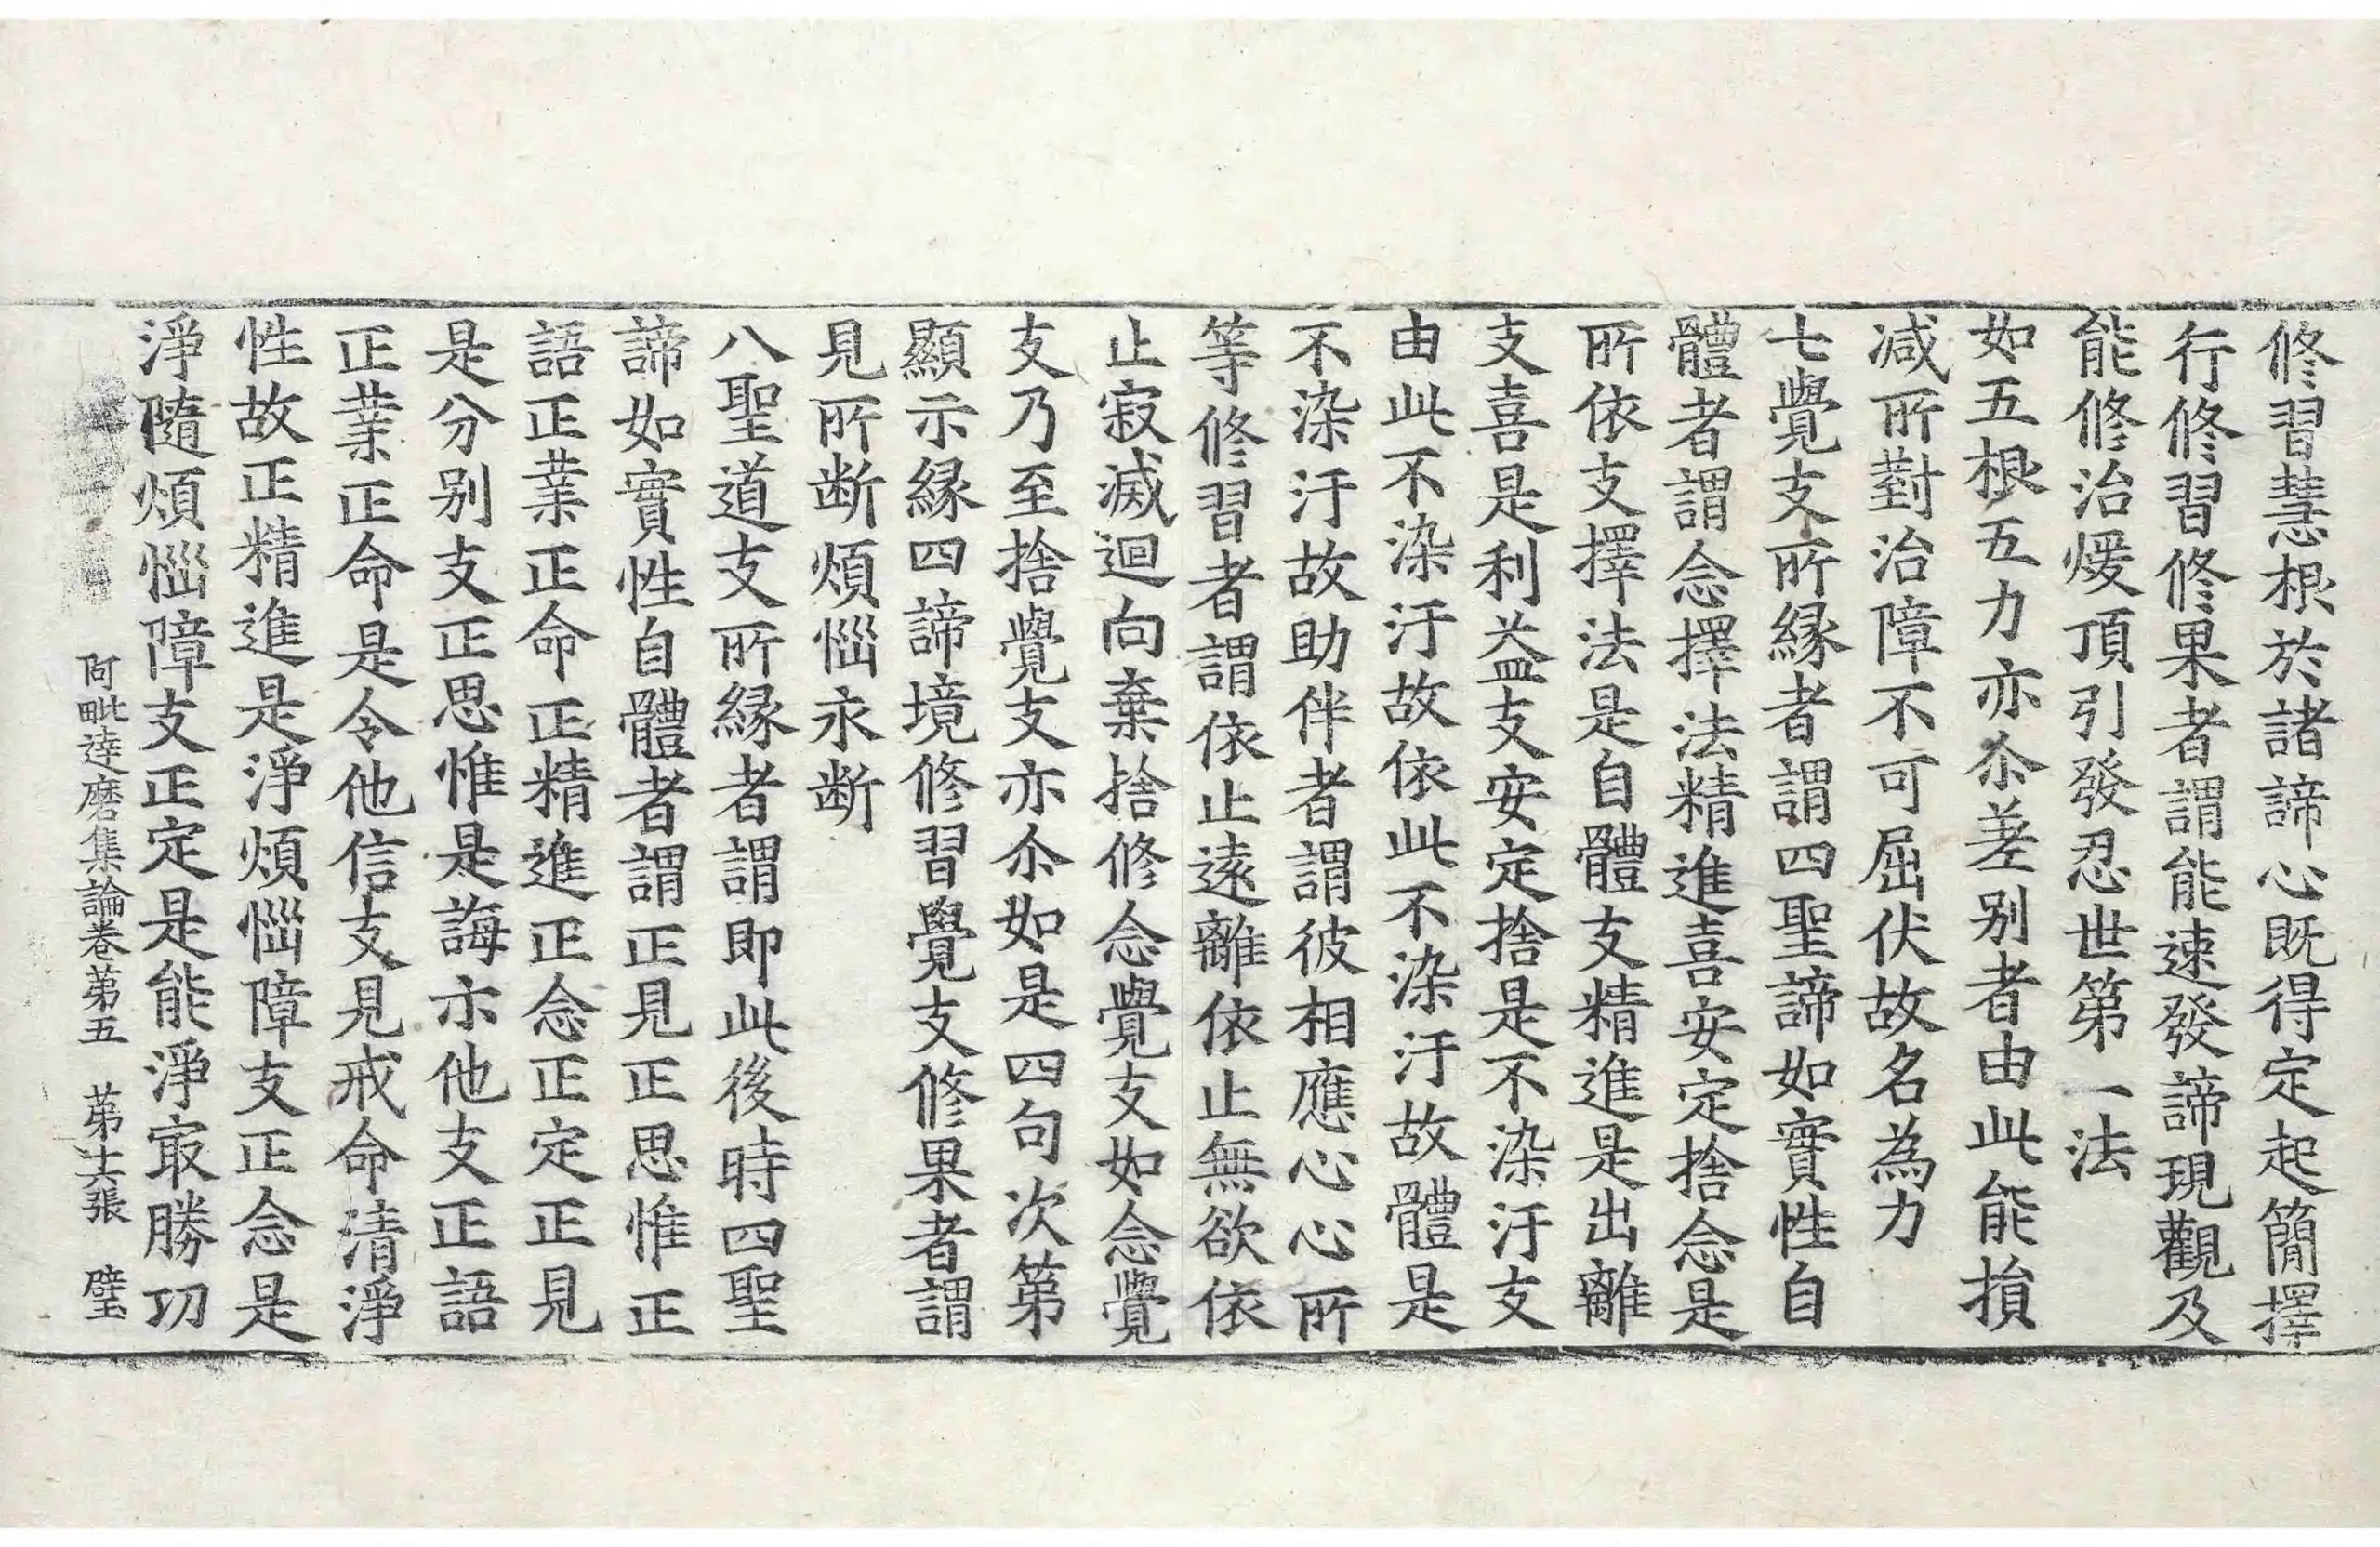 修習慧根於諸諦心既得定起簡擇
行修習修果者謂能速發諦現觀及
能修治煖頂引發忍世第一法
如五根五力亦尒差別者由此能損
減所對治障不可屈伏故名為力
七覺支所緣者謂四聖諦如實性自
體者謂念擇法精進喜安定捨念是
所依支擇法是自體支精進是出離
支喜是利益支安定捨是不染汙支
由此不染汙故依此不染汙故體是
不染汙故助伴者謂彼相應心心所
等修習者謂依止遠離依止無欲依
止寂滅迴向棄捨修念覺支如念覺
支乃至捨覺支亦尒如是四句次第
顯示緣四諦境修習覺支修果者謂
見所斷煩惱永斷
八聖道支所緣者謂即此後時四聖
諦如實性自體者謂正見正思惟正
語正業正命正精進正念正定正見
是分別支正思惟是誨示他支正語
正業正命是令他信支見戒命清淨
性故正精進是淨煩惱障支正念是
淨隨煩惱障支正定是能淨㝡勝功
阿毗達磨集論卷第五 第六張 璧